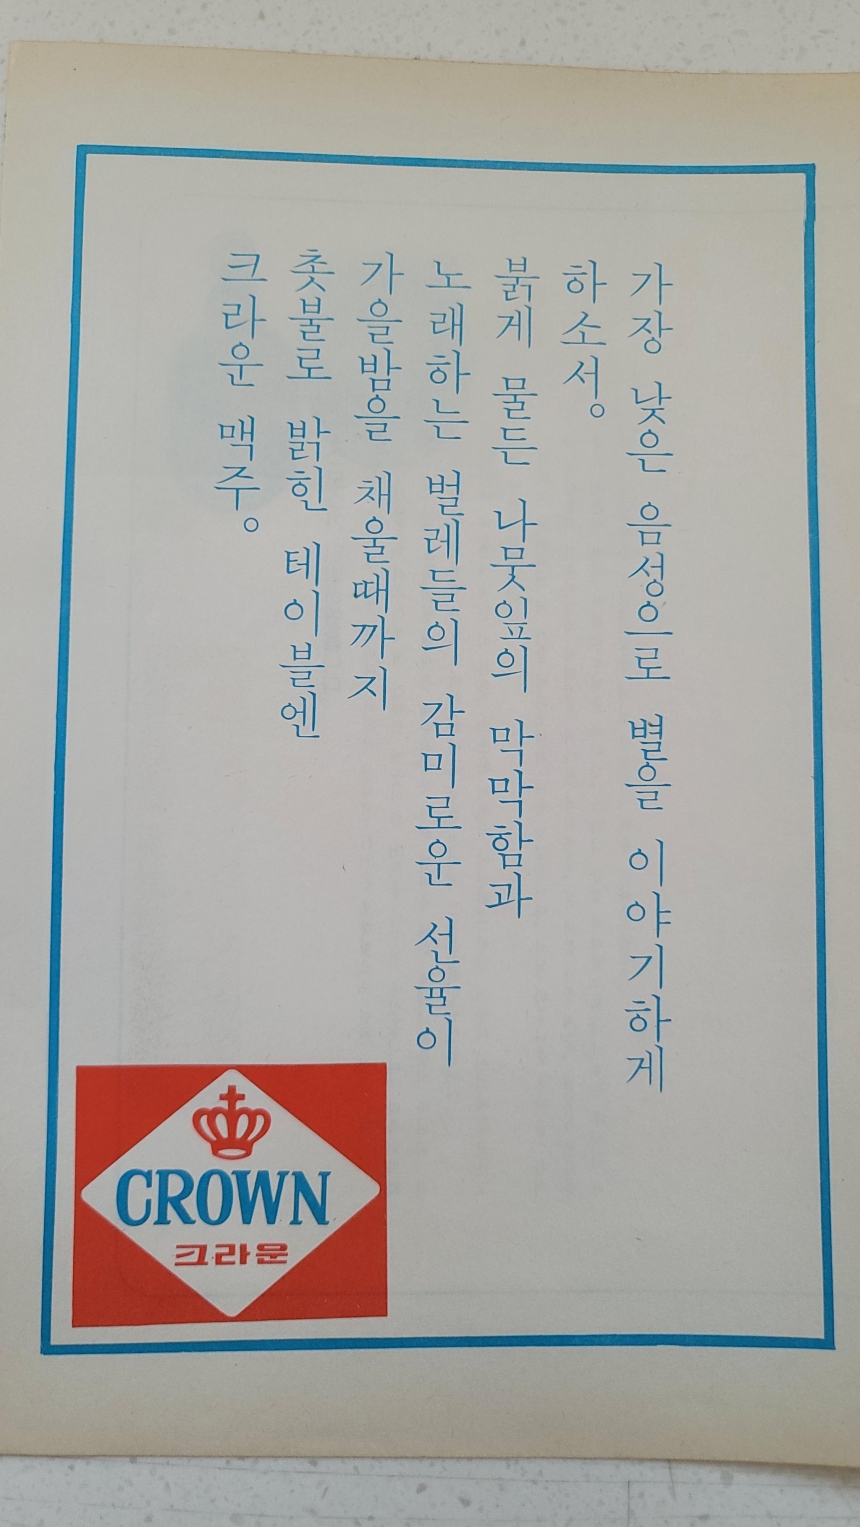 가장 낮은 음성으로 별을 이야기하게
하소서。
붉게 물든 나뭇잎의 막막함과
노래하는 벌레들의 감미로운 선율이
가을밤을 채울때까지
촛불로 밝힌 테이블엔
크라운 맥주。
CROWN
크라운